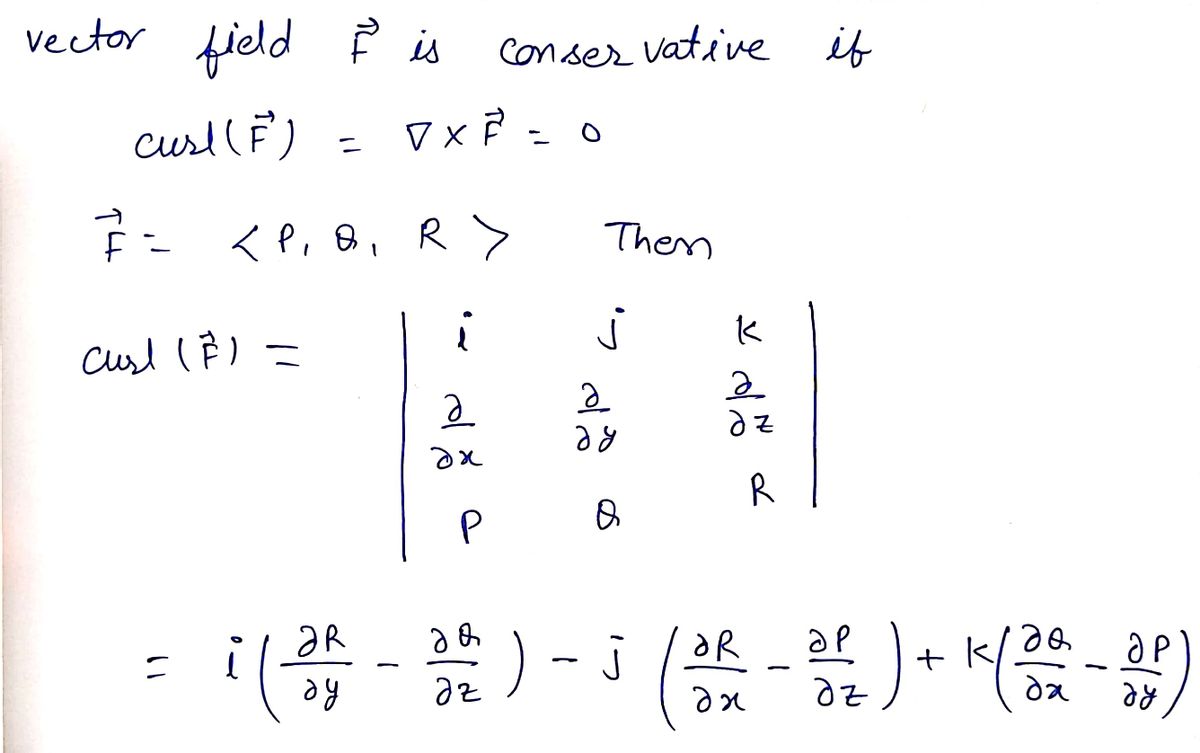 vector field F⃗ is conservative if
curl(F⃗) = ∇ × F⃗ = 0
F⃗ = < P, Q, R > Then
curl (F⃗) = | i j k |
| ∂/∂x ∂/∂y ∂/∂z |
| P Q R |
= i(∂R/∂y - ∂Q/∂z) - j(∂R/∂x - ∂P/∂z) + k(∂Q/∂x - ∂P/∂y)